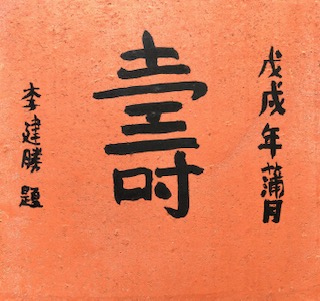 戊戌年蒲月
壽
李建勝題